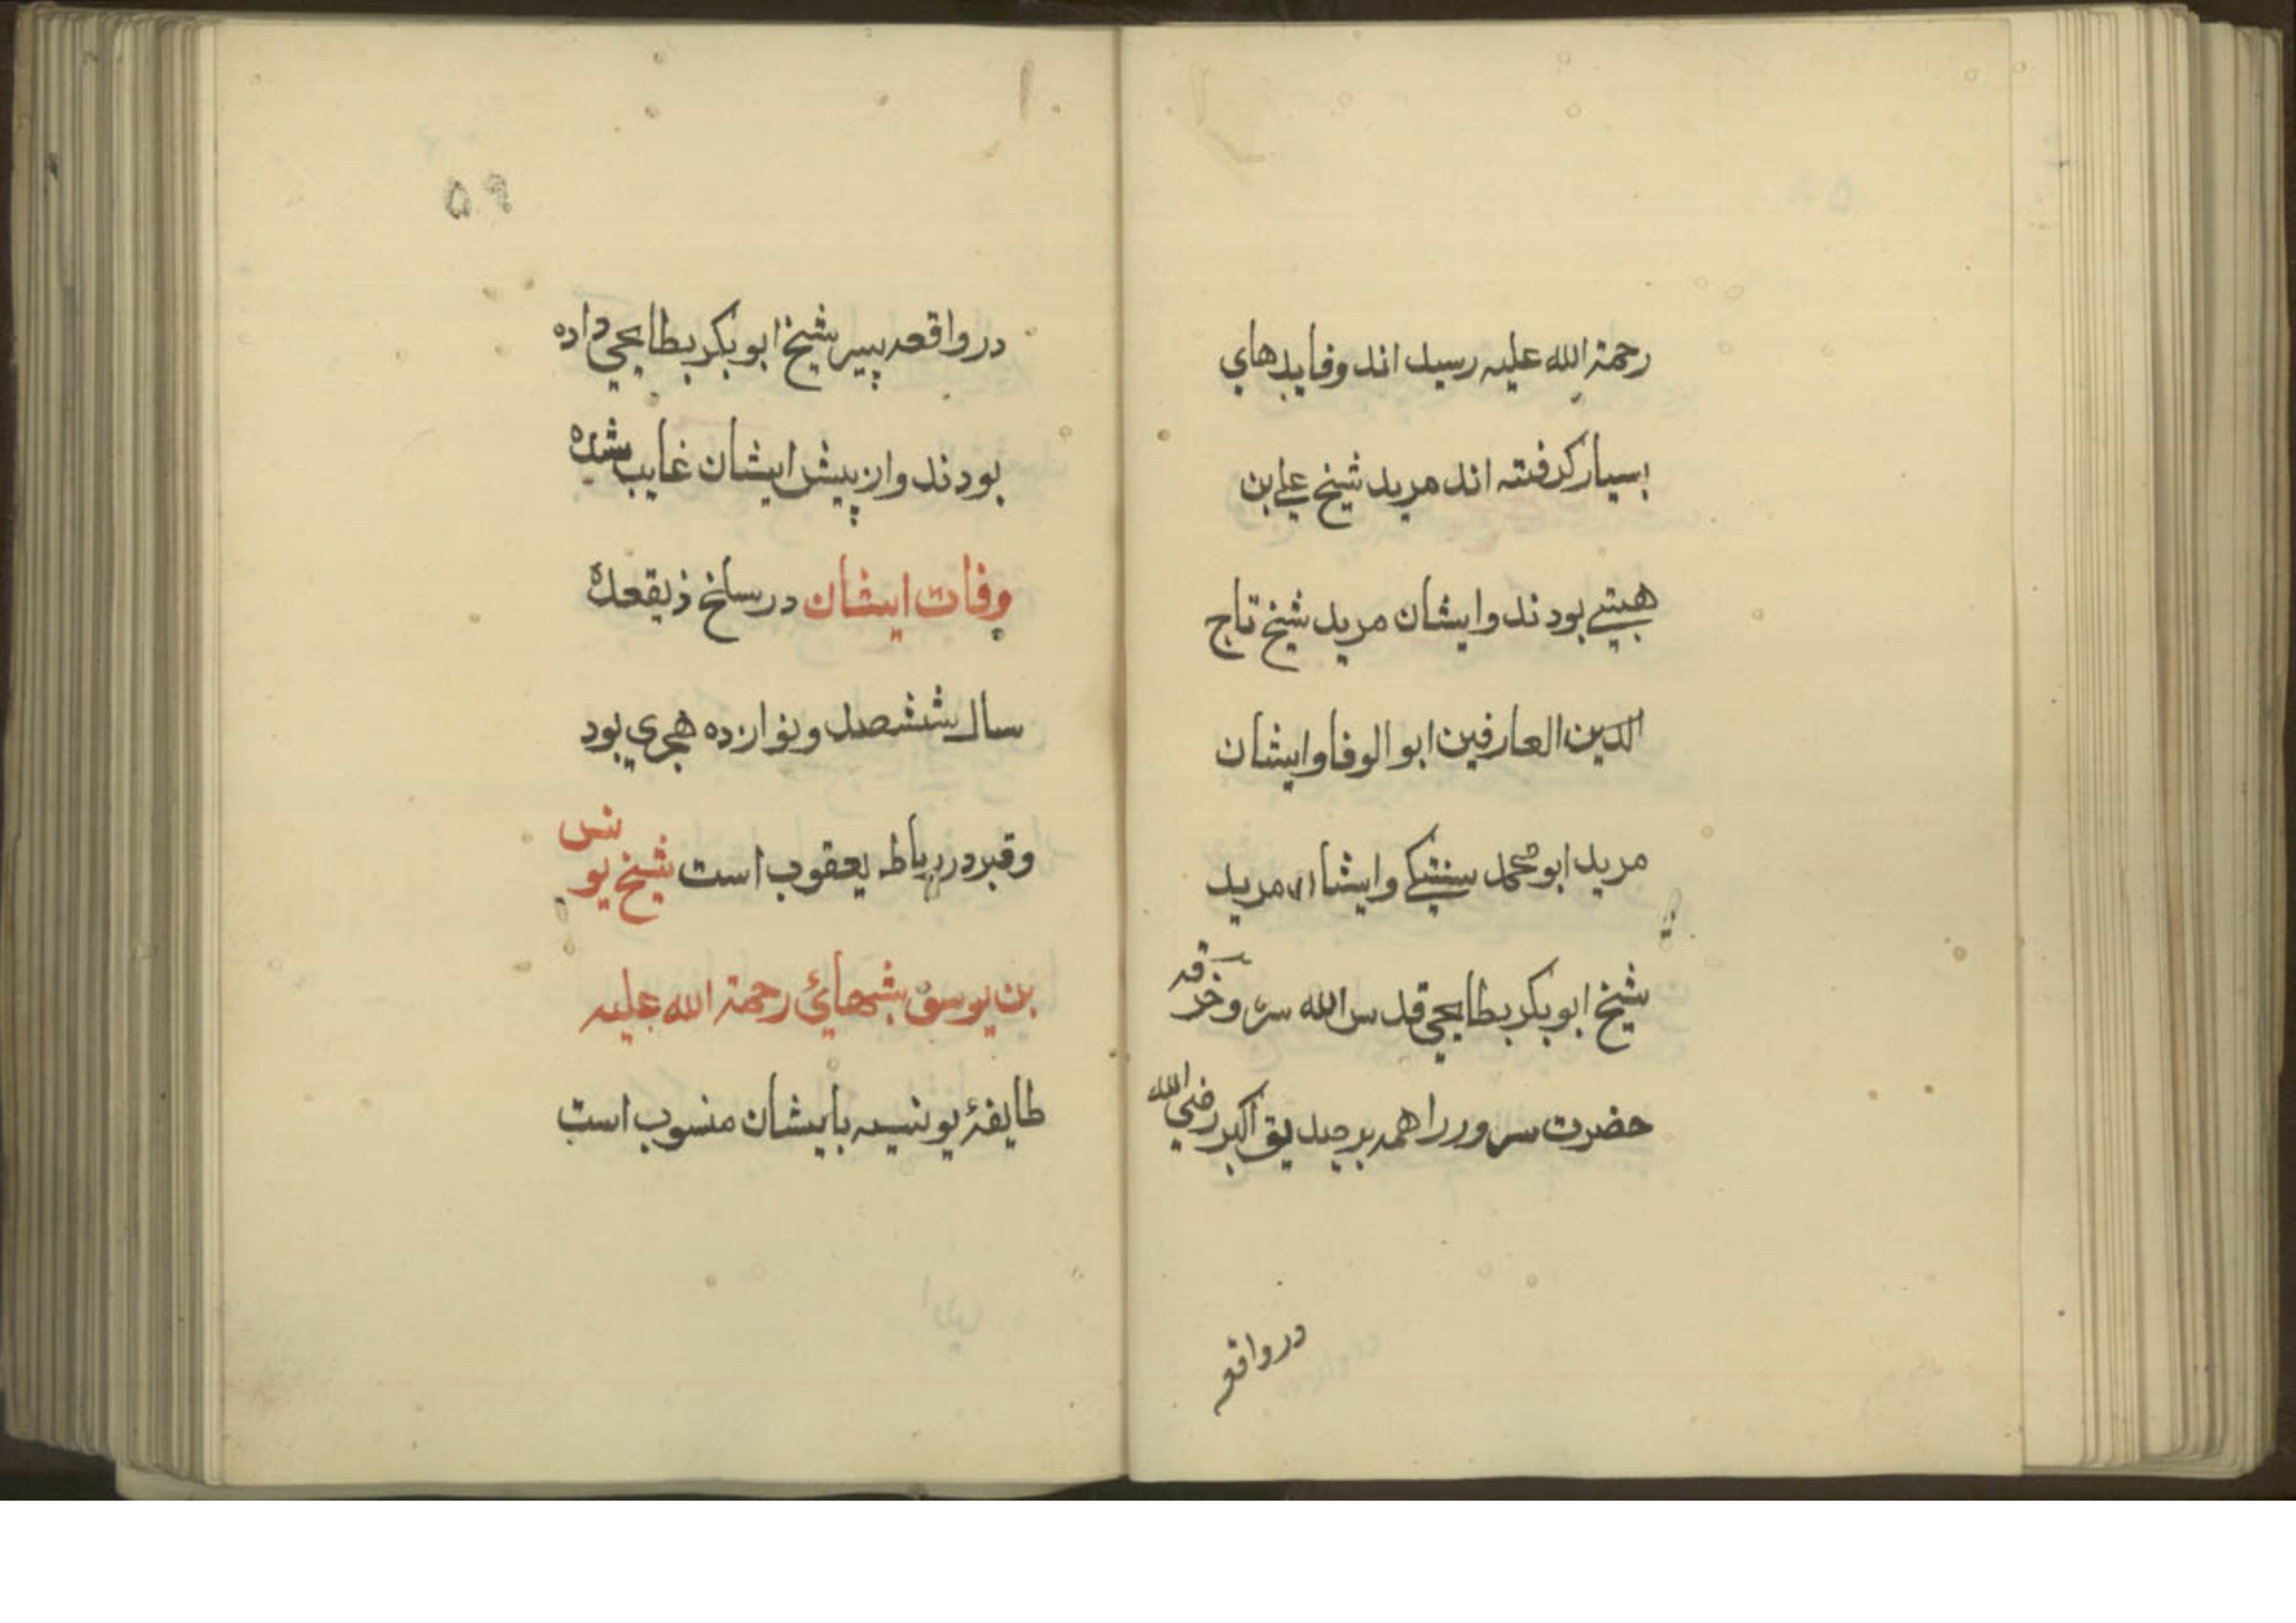 رحمة الله علیه رسید اند وفایدهاي
بسیار کرفته اند مرید شیخ علي بن
هیتے بودند وایشان مرید شیخ تاج
الدین العارفین ابو الوفا وایشان
مرید ابو محمد سنبکے وایشان مرید
شیخ ابو بکر بطایحي قدس الله سره وخرقه
حضرت سرور را همه بر صدیق اکبر رضي الله
در واقعه
۵۹
در واقعه پیر شیخ ابو بکر بطایحي داده
بودند واز پیش ایشان غایب شده
وفات ایشان در سلخ ذیقعده
سال ششصد ونوازده هجري بود
وقبر در رباط یعقوب است شیخ یونس
بن یوسف شهائي رحمة الله علیه
طایفهٔ یونسیه بایشان منسوب است